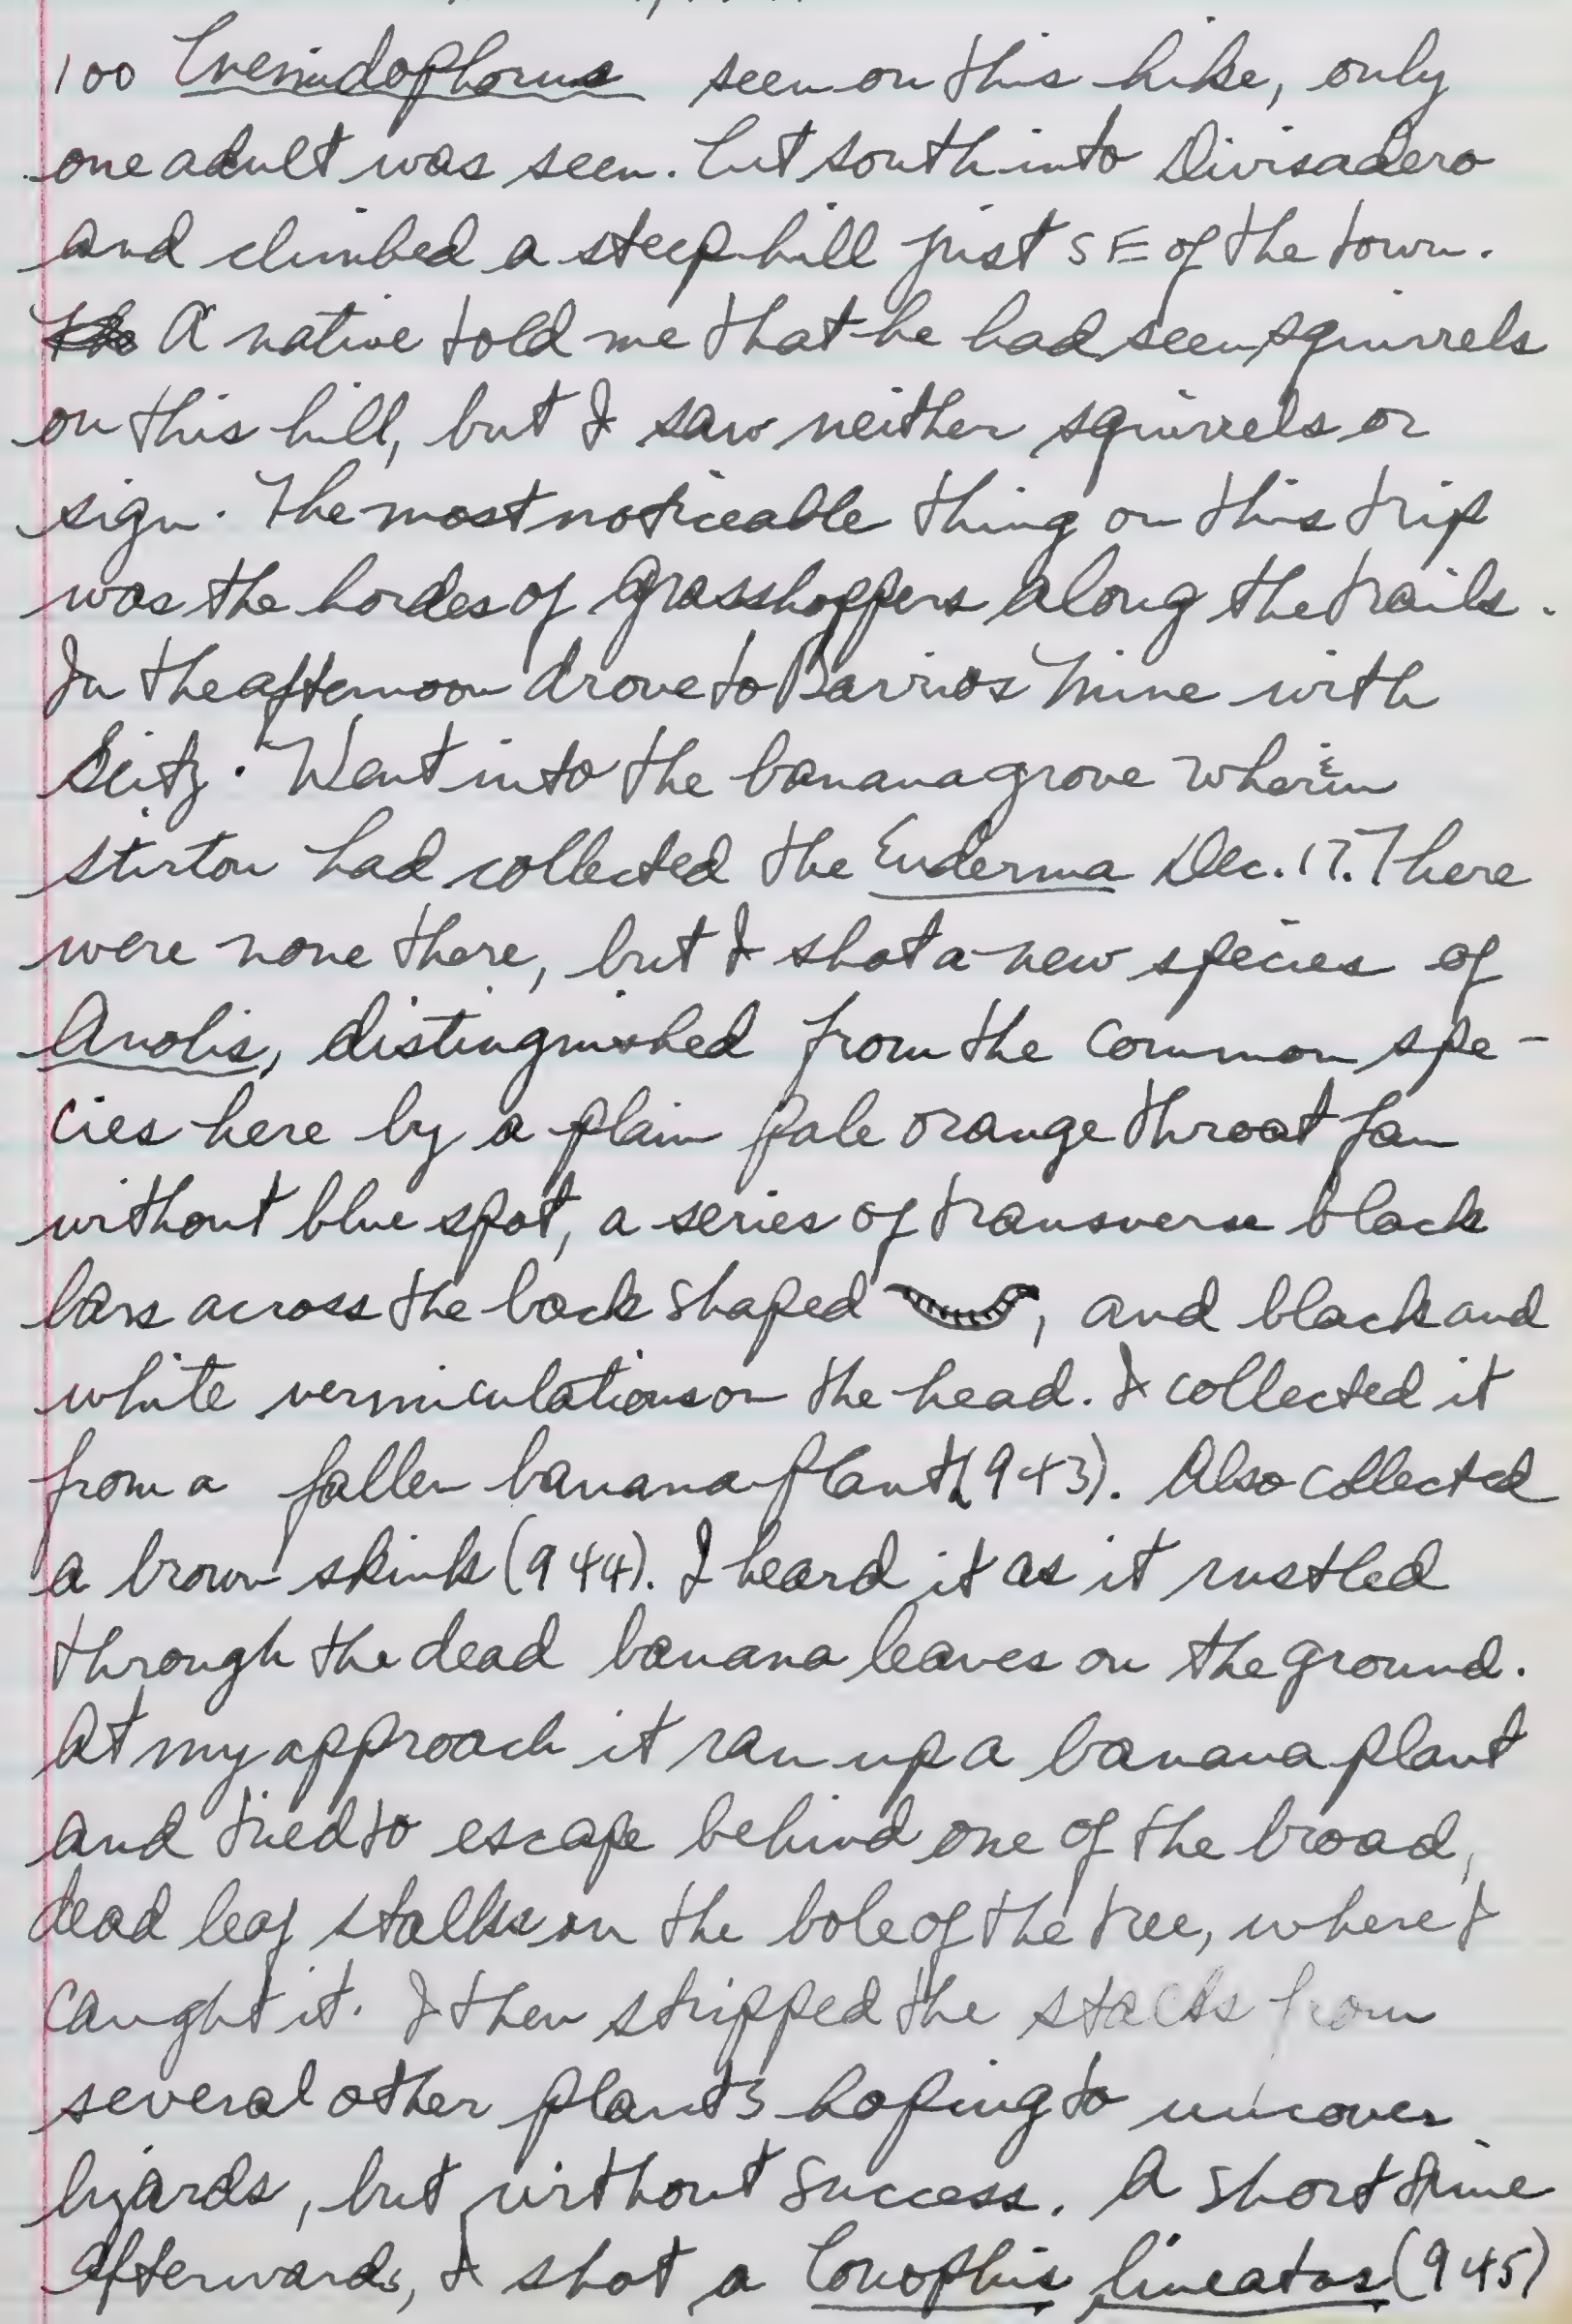 100 Cnemidophorus seen on this hike, only
one adult was seen. Cut south into Divisadero
and climbed a steep hill just SE of the town.
A native told me that he had seen squirrels
on this hill, but I saw neither squirrels or
sign. The most noticeable thing on this trip
was the hordes of grasshoppers along the trails.
In the afternoon drove to Barrios Mine with
Seitz. Went into the banana grove wherein
Stirton had collected the Euderma Dec. 17. There
were none there, but I shot a new species of
Anolis, distinguished from the common spe-
cies here by a plain pale orange throat fan
without blue spot, a series of transverse black
bars across the back shaped , and black and
white vermiculations on the head. I collected it
from a fallen banana plant (943). Also collected
a brown skink (944). I heard it as it rustled
through the dead banana leaves on the ground.
At my approach it ran up a banana plant
and tried to escape behind one of the broad,
dead leaf stalks on the bole of the tree, where I
caught it. I then stripped the stalks from
several other plants hoping to uncover
lizards, but without success. A short time
afterwards, I shot a Conophis lineatus (945)